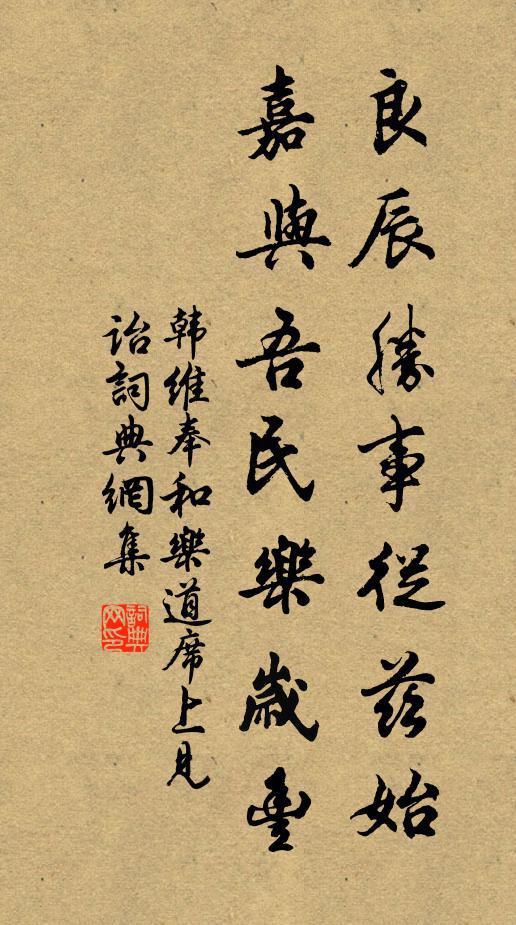 良辰勝事從茲始
嘉與吾民樂歲豐
韩維奉和樂道席上見
詒詞典網集
詞典網印